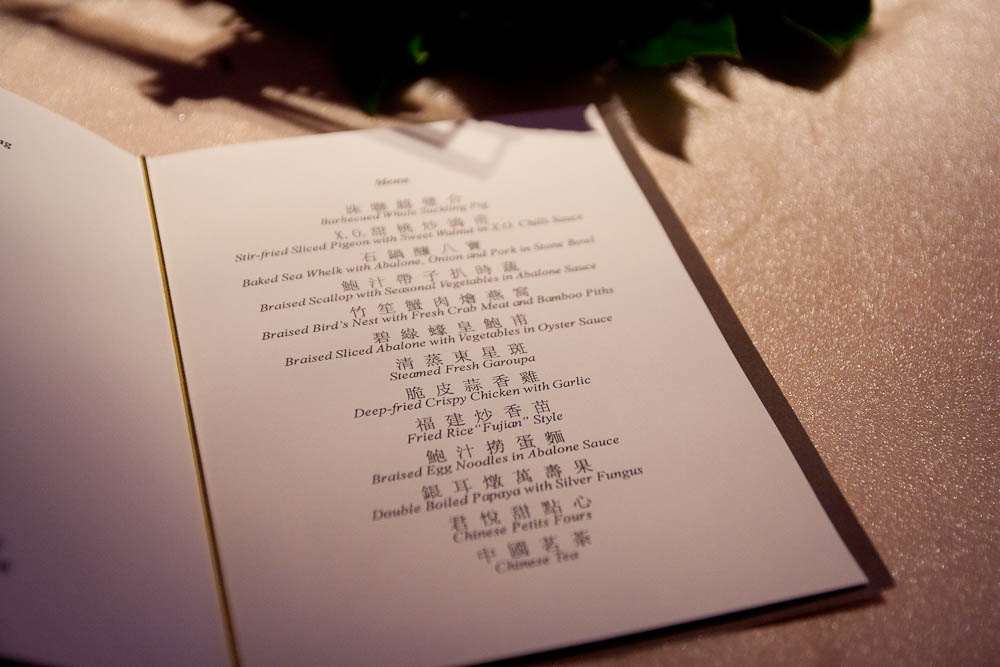 Menu
珠聯錦繡合
Barbecued Whole Suckling Pig
X.O.甜桃炒鴿甫
Stir-fried Sliced Pigeon with Sweet Walnut in X.O. Chili Sauce
石鍋釀八寶
Baked Sea Whelk with Abalone, Onion and Pork in Stone Bowl
鮑汁帶子扒時蔬
Braised Scallop with Seasonal Vegetables in Abalone Sauce
竹笙蟹肉燴燕窩
Braised Bird's Nest with Fresh Crab Meat and Bamboo Piths
碧綠蠔皇鮑甫
Braised Sliced Abalone with Vegetables in Oyster Sauce
清蒸東星斑
Steamed Fresh Garoupa
脆皮蒜香雞
Deep-fried Crispy Chicken with Garlic
福建炒香苗
Fried Rice "Fujian" Style
鮑汁撈蛋麵
Braised Egg Noodles in Abalone Sauce
銀耳燉萬壽果
Double Boiled Papaya with Silver Fungus
君悅甜點心
Chinese Petits Fours
中國茗茶
Chinese Tea